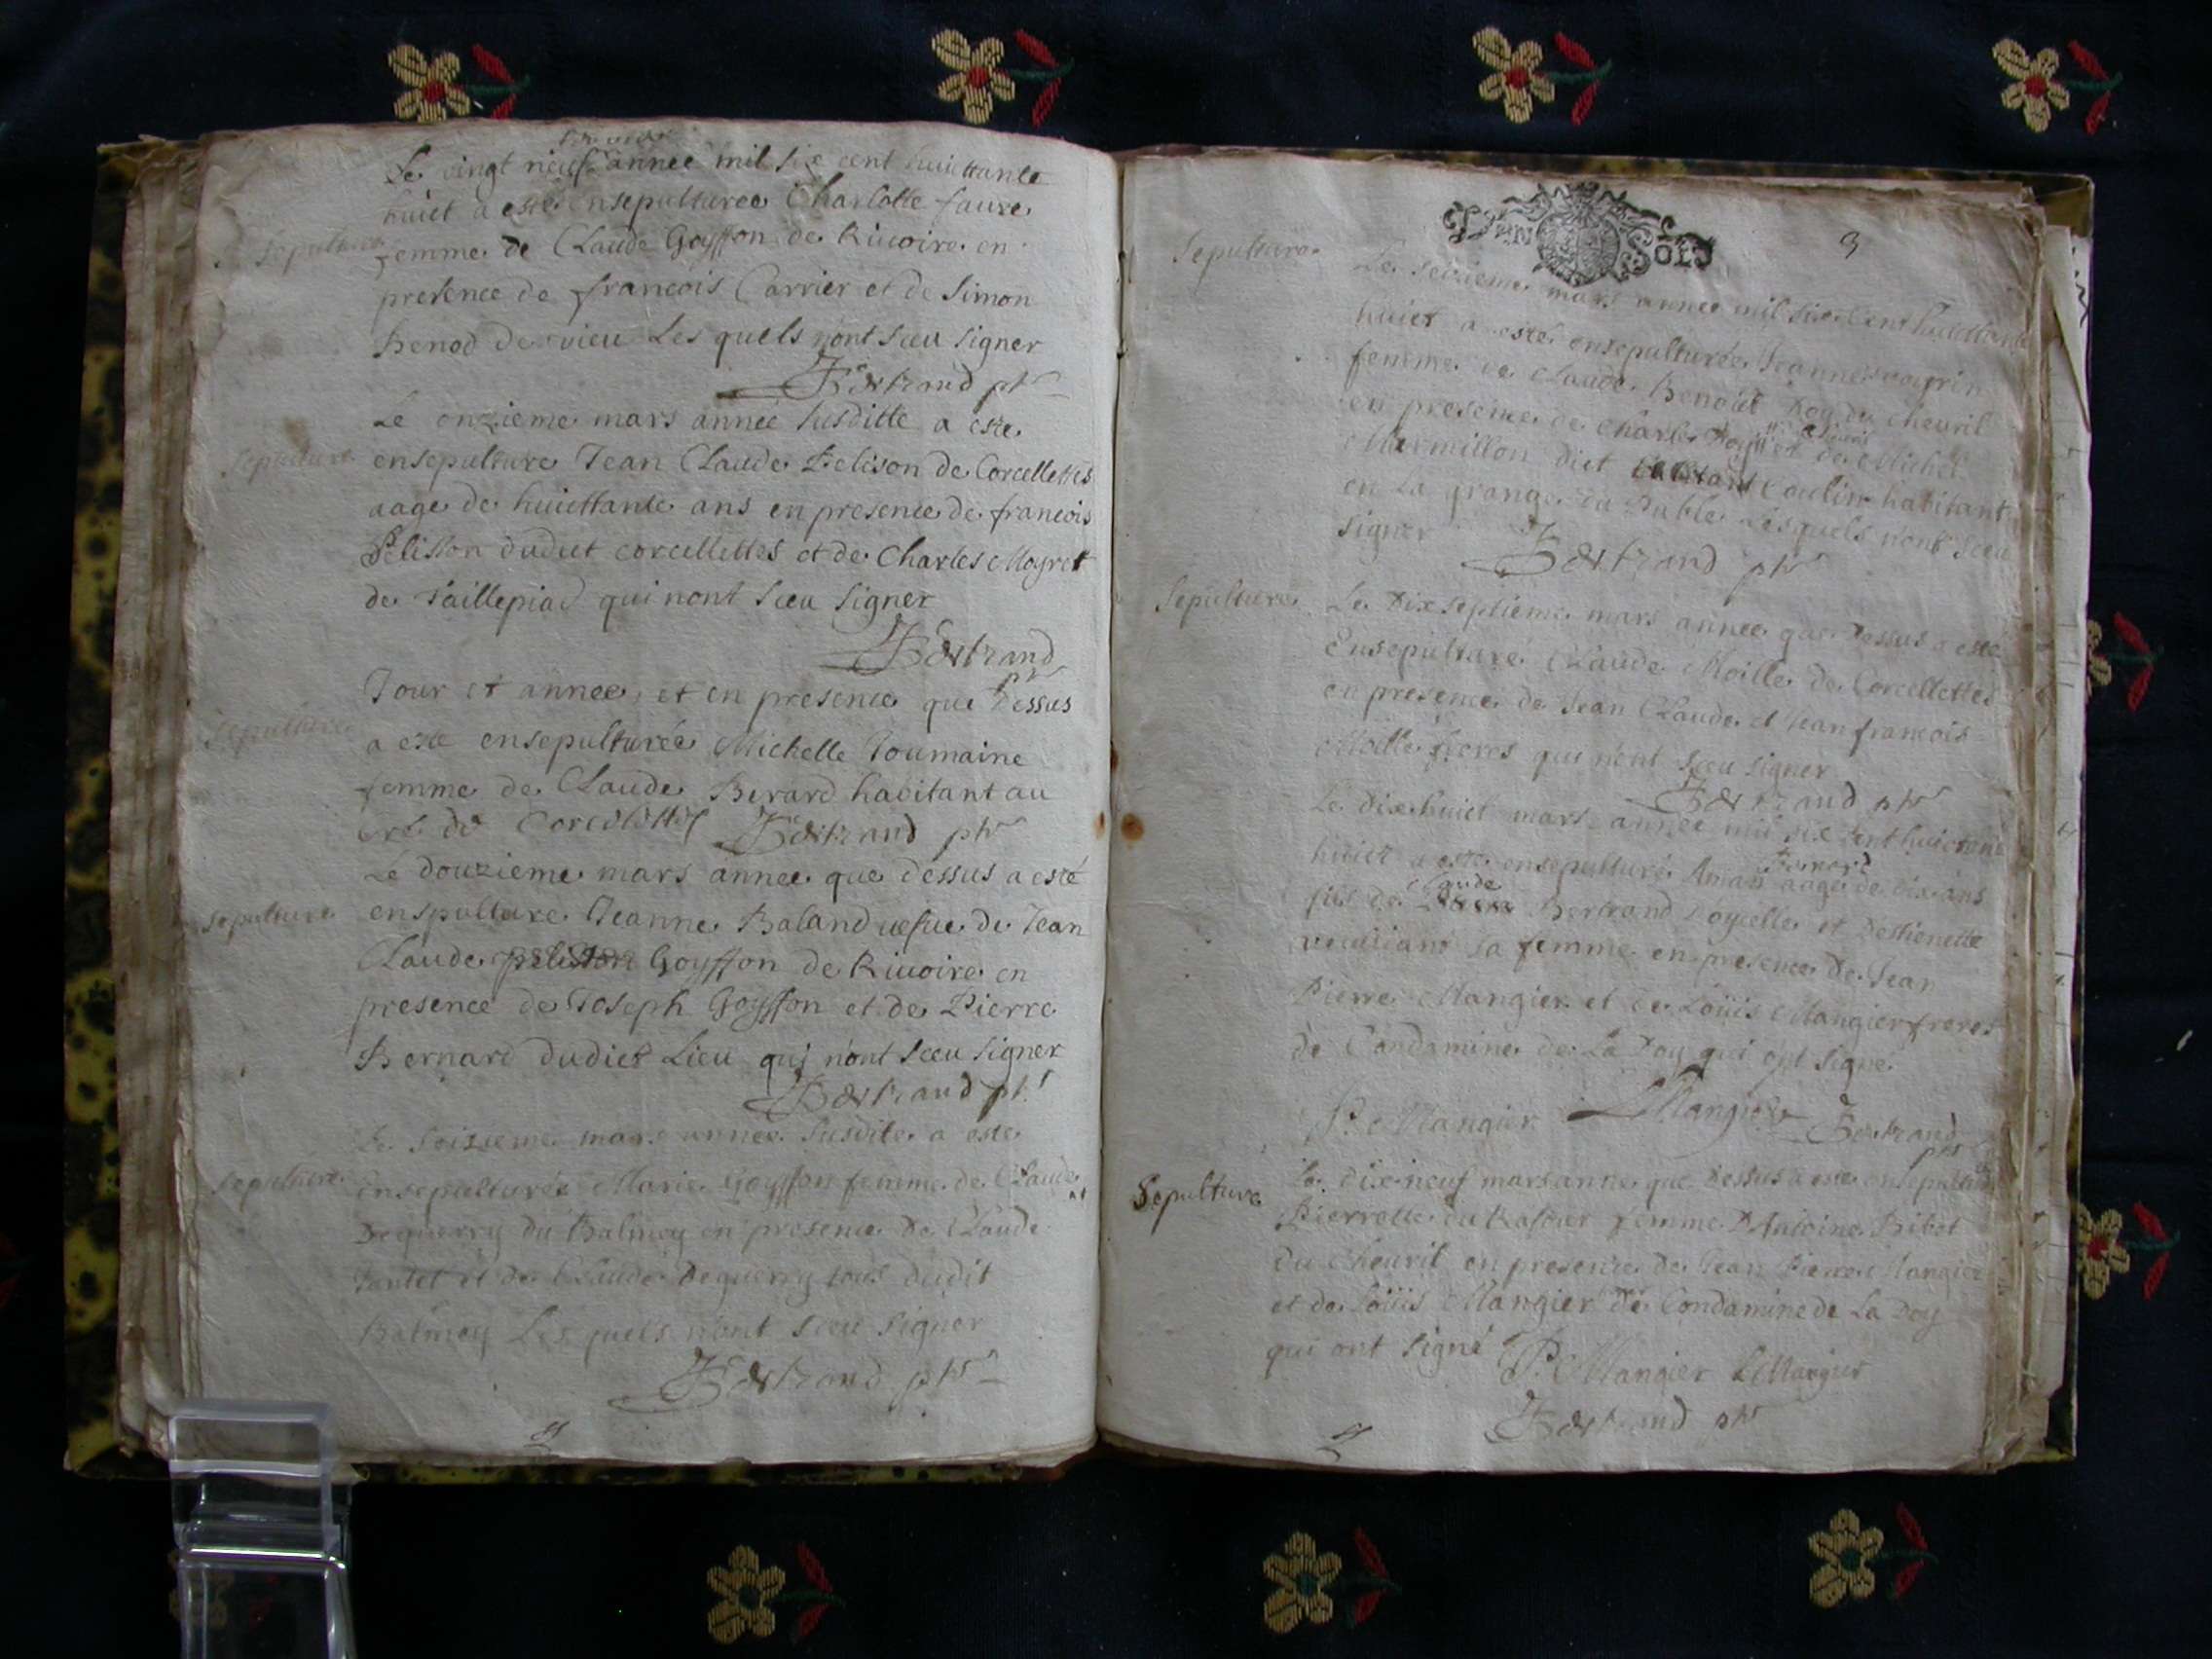 Le vingt neuf fevrier année mil six cent huicttante
huict a esté ensepulturée Charlotte faure
Sepulture femme de Claude Goyffon de Riuoire en
presence de francois Carrier et de Simon
Benod de vieu Les quels nont sceu signer
Bertrand ptr
Le onzieme mars année susditte a este
Sepulture ensepulture Jean Claude Pelison de Corcellettes
aage de huicttante ans en presence de francois
Pelisson dudict corcellettes et de Charles Moyret
de Taillepiad qui nont sceu signer
Bertrand
ptr
Jour et année, et en presence que Dessus
Sepulture a este ensepulturée Michelle Joumaine
femme de Claude Berard habitant au
de Corcelettes Bertrand ptr
Le douzieme mars année que dessus a esté
sepulture enspulture Jeanne Baland uefue de Jean
Claude pelisson Goyffon de Riuoire en
presence de Joseph Goyffon et de Pierre
Bernard dudict Lieu qui nont sceu signer
Bertrand ptr
Le seizieme mars année susdite a este
sepulture ensepulturée Marie Goyffon femme de Claude
Deguerry du Balmey en presence de Claude
et de Claude Deguerry tous dudit
Balmey Les quels nont sceu signer
Bertrand ptr
DEUX SOLS
3
Sepulture Le seizieme mars année mil six cent huicttante
huict a esté ensepulturée Jeanne
femme de Claude Benoict Doy du cheuril
en presence de Charles et de Michel
Marmillon dict Coulin habitant
en La grange du Lesquels nont sceu
signer Bertrand ptr
Sepulture Le Dix septieme mars année que Dessus a esté
Ensepulturé Claude Moille de Corcellettes
en presence de Jean Claude et Jean francois
Moille freres qui nont sceu signer
Bertrand ptr
Le dix huict mars année mil six cent huictante
huict a esté ensepulturé Aman Bernard aagé de dix ans
fils de Claude Bertrand et Destienette
sa femme en presence de Jean
Pierre Mangier et de Loüis Mangier freres
de Condamine de La Doy qui ont signé
P. Mangier LMangier Bertrand
ptr
Sepulture Le dix neuf mars année que dessus a este ensepulturée
Pierrette du femme D'Antoine Bibet
du cheuril en presence de Jean Pierre Mangier
et de Loüis Mangier de Condamine de La Doy
qui ont signé P. Mangier LMangier
Bertrand ptr